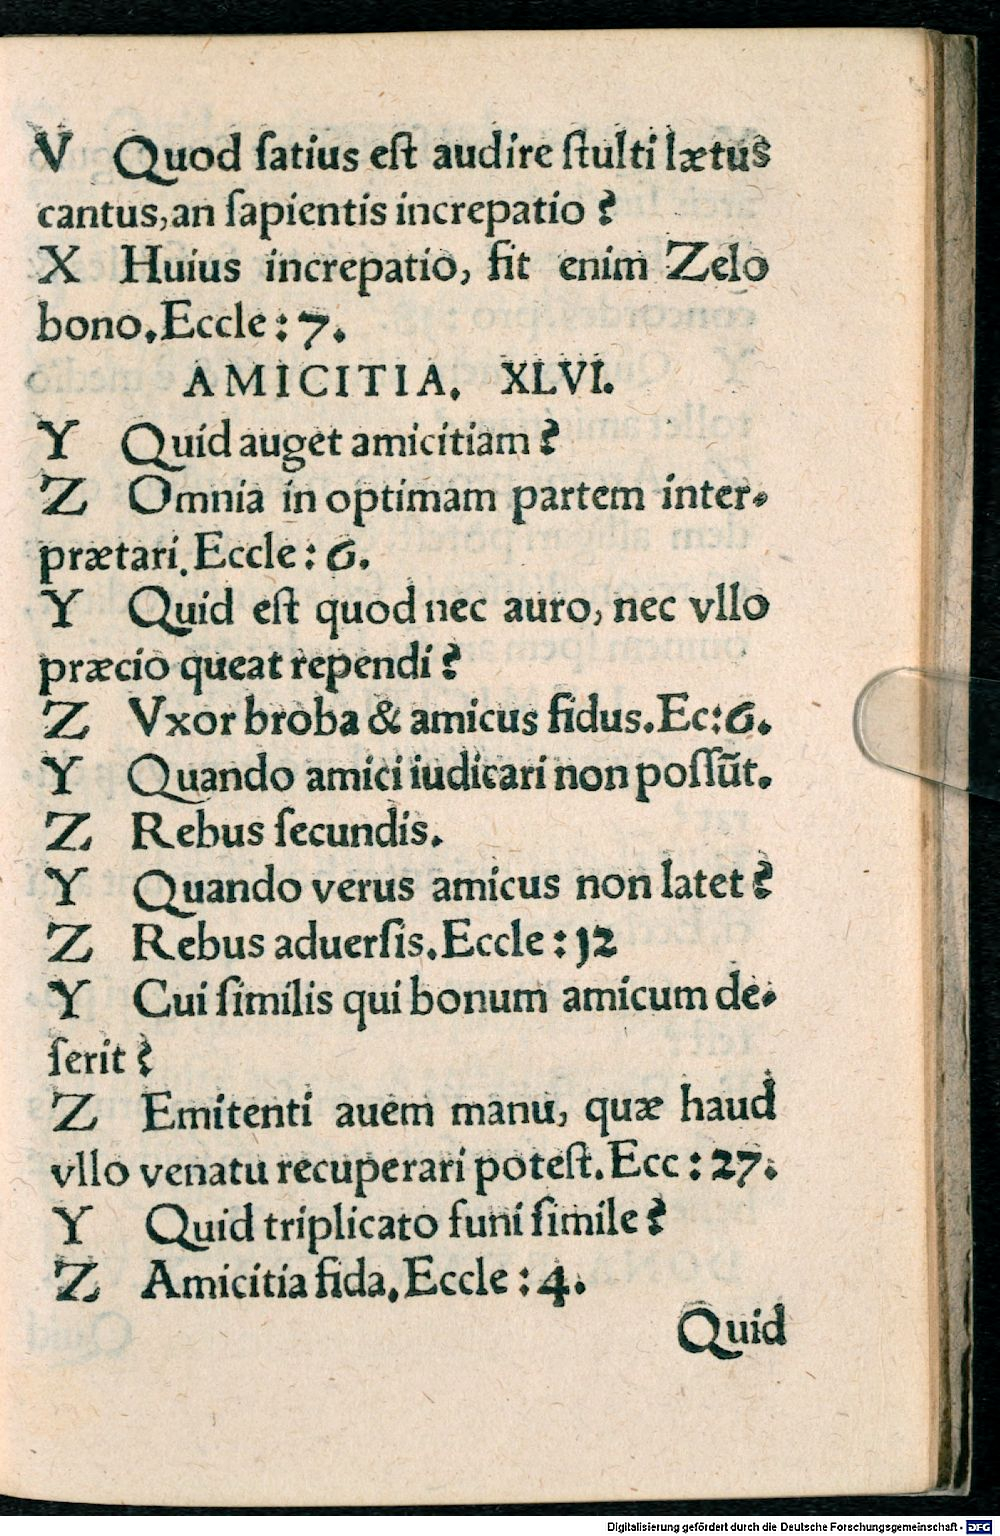 V Quod ſatius eſt audire ſtulti lætus
cantus, an ſapientis increpatio?
X Huius increpatio, fit enim Zelo
bono. Eccle: 7.
AMICITIA. XLVI.
Y Quid auget amicitiam?
Z Omnia in optimam partem inter-
prætari. Eccle: 6.
Y Quid eſt quod nec auro, nec vllo
præcio queat rependi?
Z Vxor broba & amicus fidus. Ec: 6.
Y Quando amici iudicari non poſſūt.
Z Rebus ſecundis.
Y Quando verus amicus non latet?
Z Rebus aduerſis. Eccle: 12
Y Cui ſimilis qui bonum amicum de-
ſerit?
Z Emitenti auem manu, quæ haud
vllo venatu recuperari poteſt. Ecc: 27.
Y Quid triplicato funi ſimile?
Z Amicitia fida. Eccle: 4.
Quid
Digitalisierung gefördert durch die Deutsche Forschungsgemeinschaft - DFG